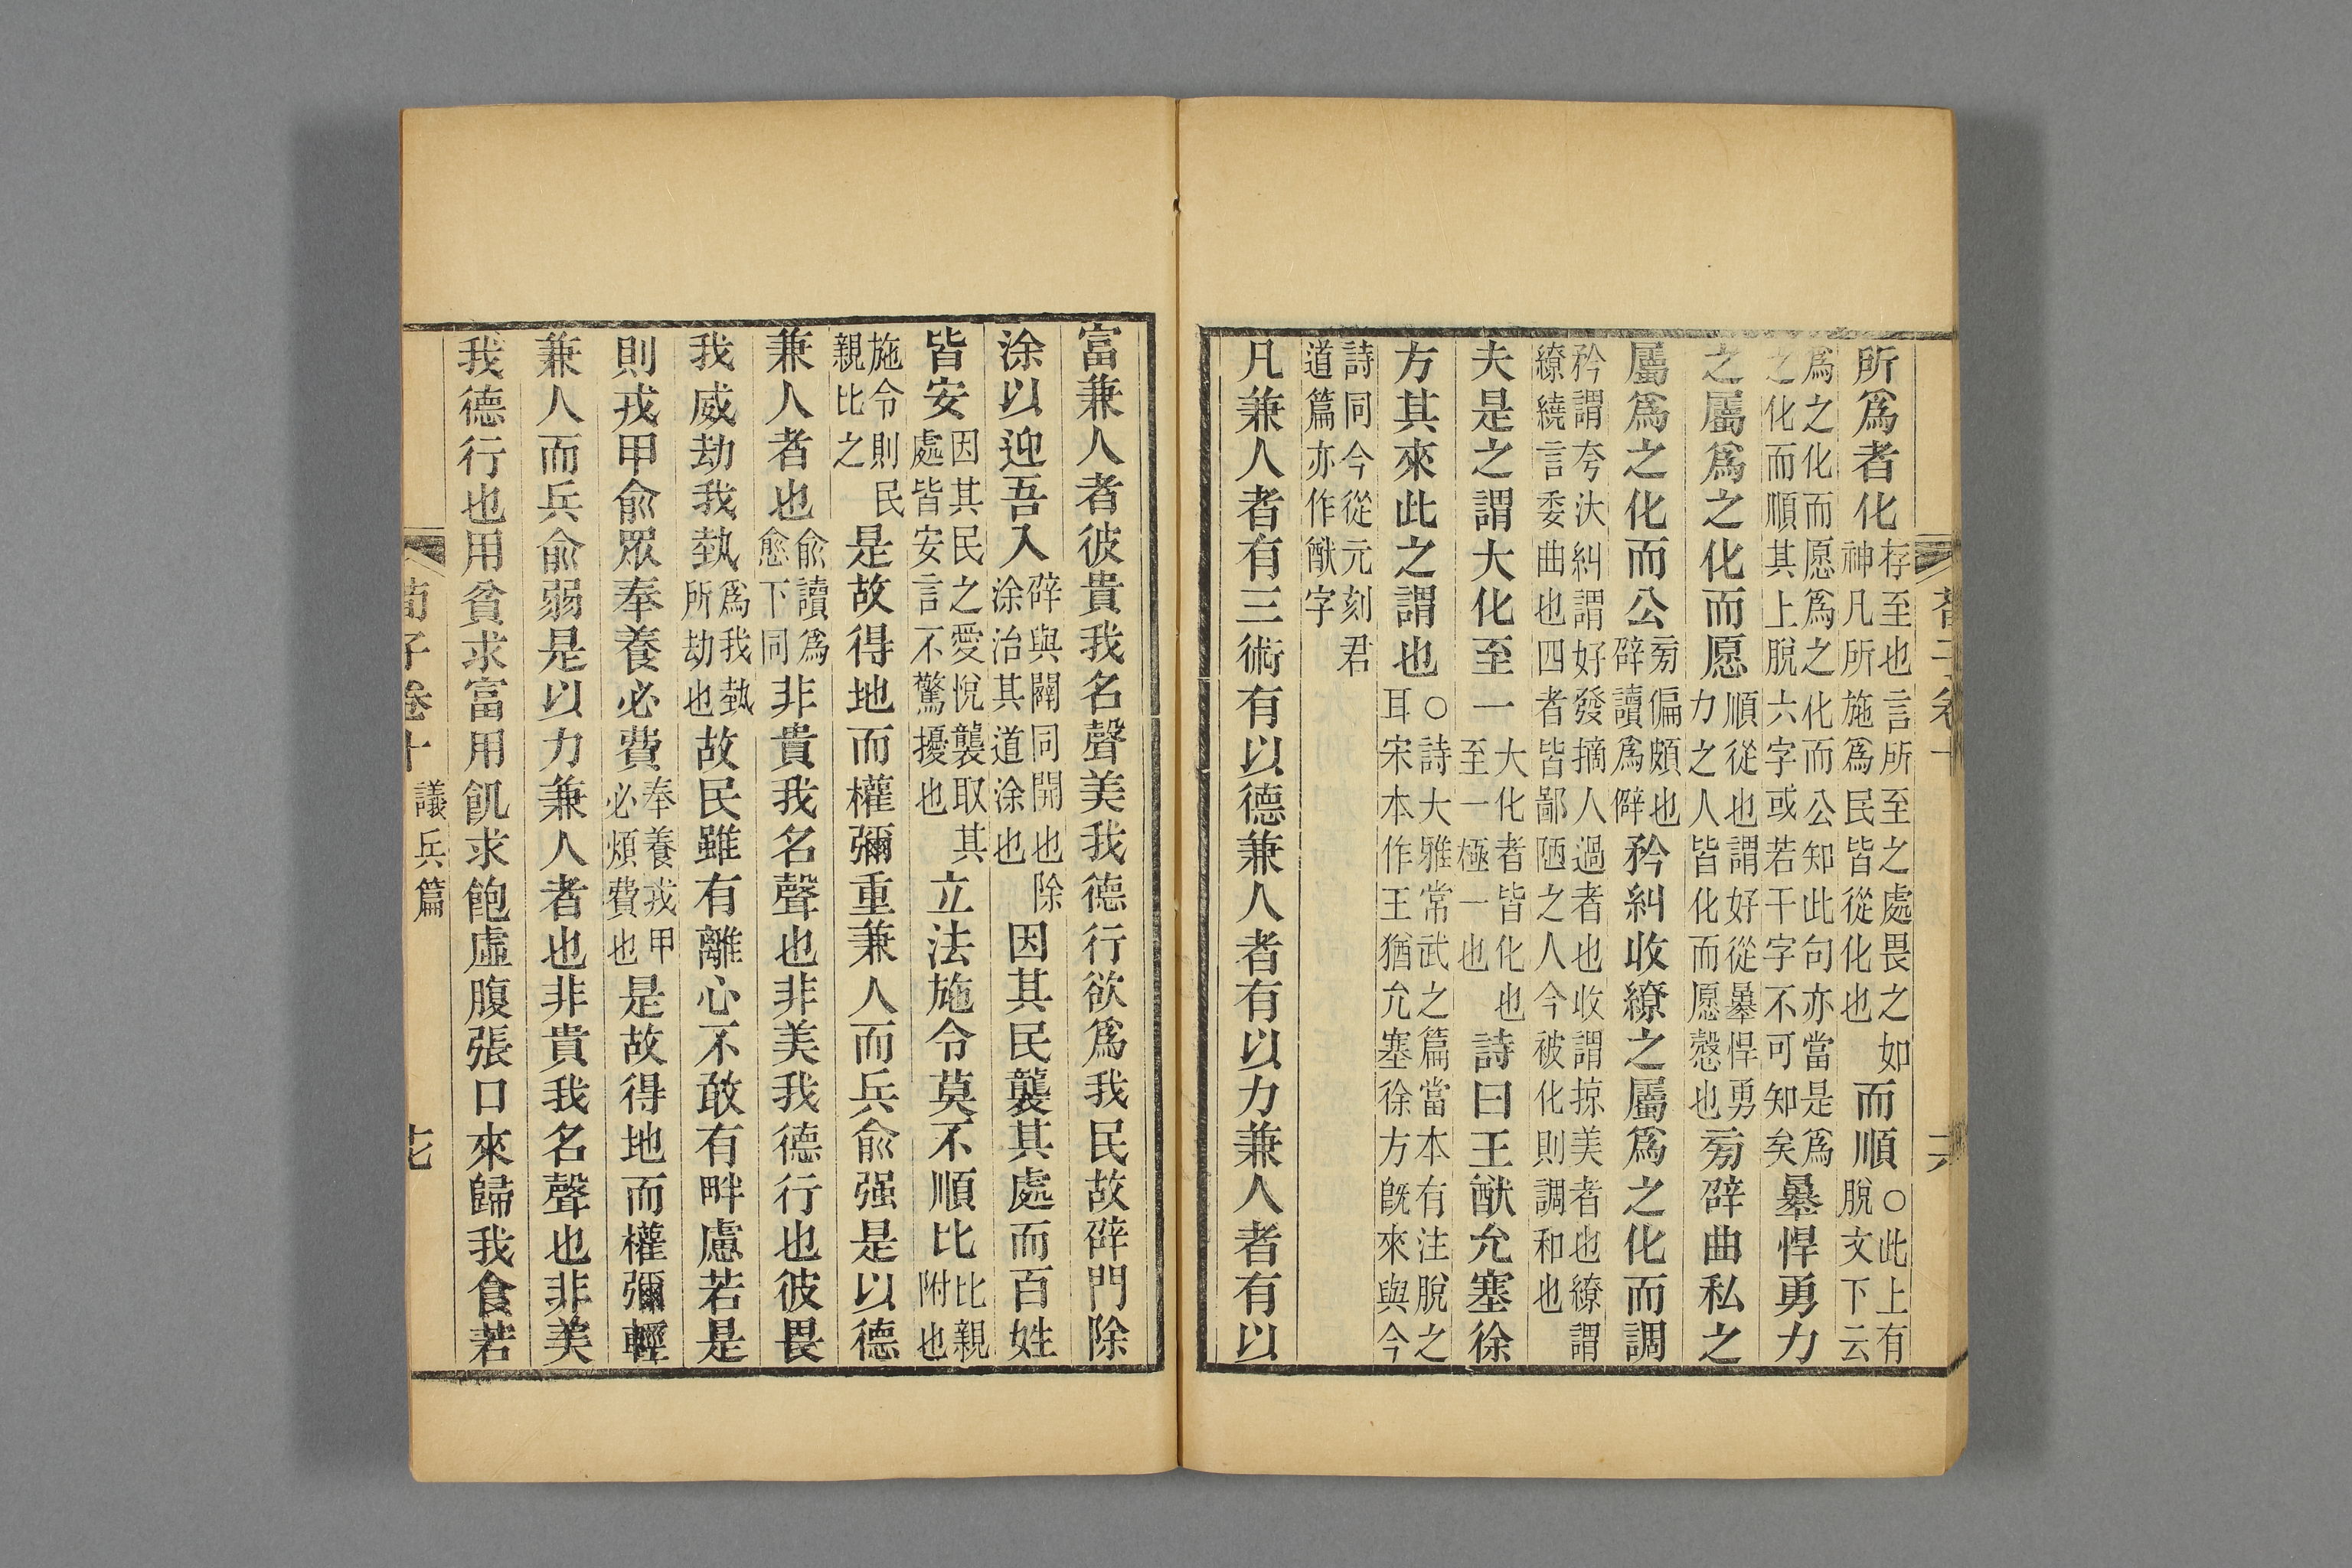 所爲者化存至也言所至之處畏之如神凡所施爲民皆從化也而順○此上有脫文下云
爲之化而愿爲之化而公知此句亦當是爲之化而順其上脫六字或若干字不可知矣暴悍勇力
之屬爲之化而愿順從也謂好從暴悍勇力之人皆化而愿愨也旁辟曲私之
屬爲之化而公旁偏頗也辟讀爲僻矜糾收繚之屬爲之化而調
矜謂夸汏糾謂好發摘人過者也收謂掠美者也繚謂繚繞言委曲也四者皆鄙陋之人今被化則調和也
夫是之謂大化至一大化者皆化也至一極一也詩曰王猷允塞徐
方其來此之謂也○詩大雅常武之篇當本有注脫之耳宋本作王猶允塞徐方旣來與今
詩同今從元刻君道篇亦作猷字
凡兼人者有三術有以德兼人者有以力兼人者有以
富兼人者彼貴我名聲美我德行欲爲我民故辟門除
涂以迎吾入辟與闢同開也除涂治其道涂也因其民襲其處而百姓
皆安因其民之愛悅襲取其處皆安言不驚擾也立法施令莫不順比比親附也
施令則民親比之是故得地而權彌重兼人而兵俞强是以德
兼人者也俞讀爲愈下同非貴我名聲也非美我德行也彼畏
我威劫我埶爲我埶所劫也故民雖有離心不敢有畔慮若是
則戎甲俞眾奉養必費奉養戎甲必煩費也是故得地而權彌輕
兼人而兵俞弱是以力兼人者也非貴我名聲也非美
我德行也用貧求富用飢求飽虛腹張口來歸我食若
荀子卷十 議兵篇